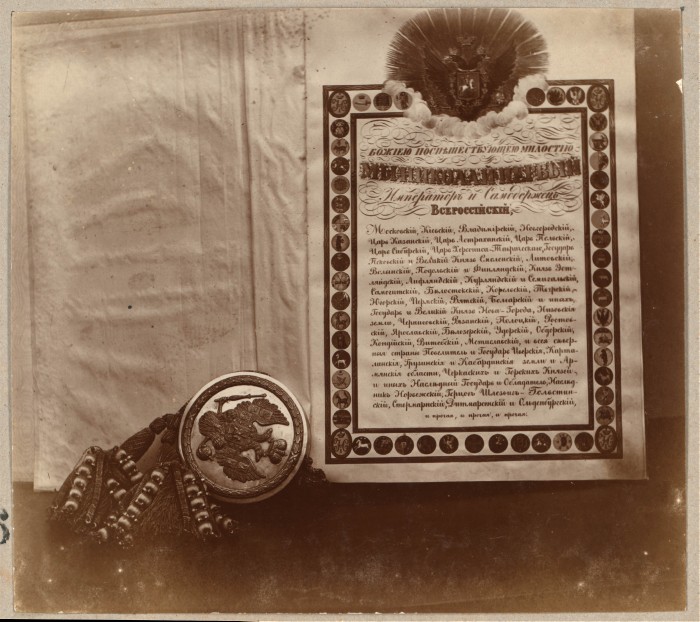 БОЖІЕЮ ПОСПѢШЕСТВУЮЩЕЮ МИЛОСТІЮ
МЫ НИКОЛАЙ ПЕРВЫЙ
Императоръ и Самодержецъ
ВСЕРОССІЙСКІЙ,
Московскій, Кіевскій, Владимірскій, Новгородскій,
Царь Казанскій, Царь Астраханскій, Царь Польскій,
Царь Сибирскій, Царь Херсониса-Таврическаго, Государь
Псковскій и Великій Князь Смоленскій, Литовскій,
Волынскій, Подольскій и Финляндскій, Князь Эст-
ляндскій, Лифляндскій, Курляндскій и Семигальскій,
Самогитскій, Бѣлостокскій, Корельскій, Тверскій,
Югорскій, Пермскій, Вятскій, Болгарскій и иныхъ,
Государь и Великій Князь Нова-Города, Низовскія
земли, Черниговскій, Рязанскій, Полоцкій, Ростов-
скій, Ярославскій, Бѣлозерскій, Удорскій, Обдорскій,
Кондійскій, Витебскій, Мстиславскій, и всея сѣвер-
ныя страны Повелитель и Государь Иверскія, Карта-
линскія, Грузинскія и Кабардинскія земли и Ар-
мянскія области, Черкаскихъ и Горскихъ Князей,
и иныхъ Наслѣдный Государь и Обладатель, Наслѣд-
никъ Норвежскій, Герцогъ Шлезвигъ-Голстин-
скій, Стормарнскій, Дитмарсскій и Ольденбургскій,
и прочая, и прочая, и прочая.